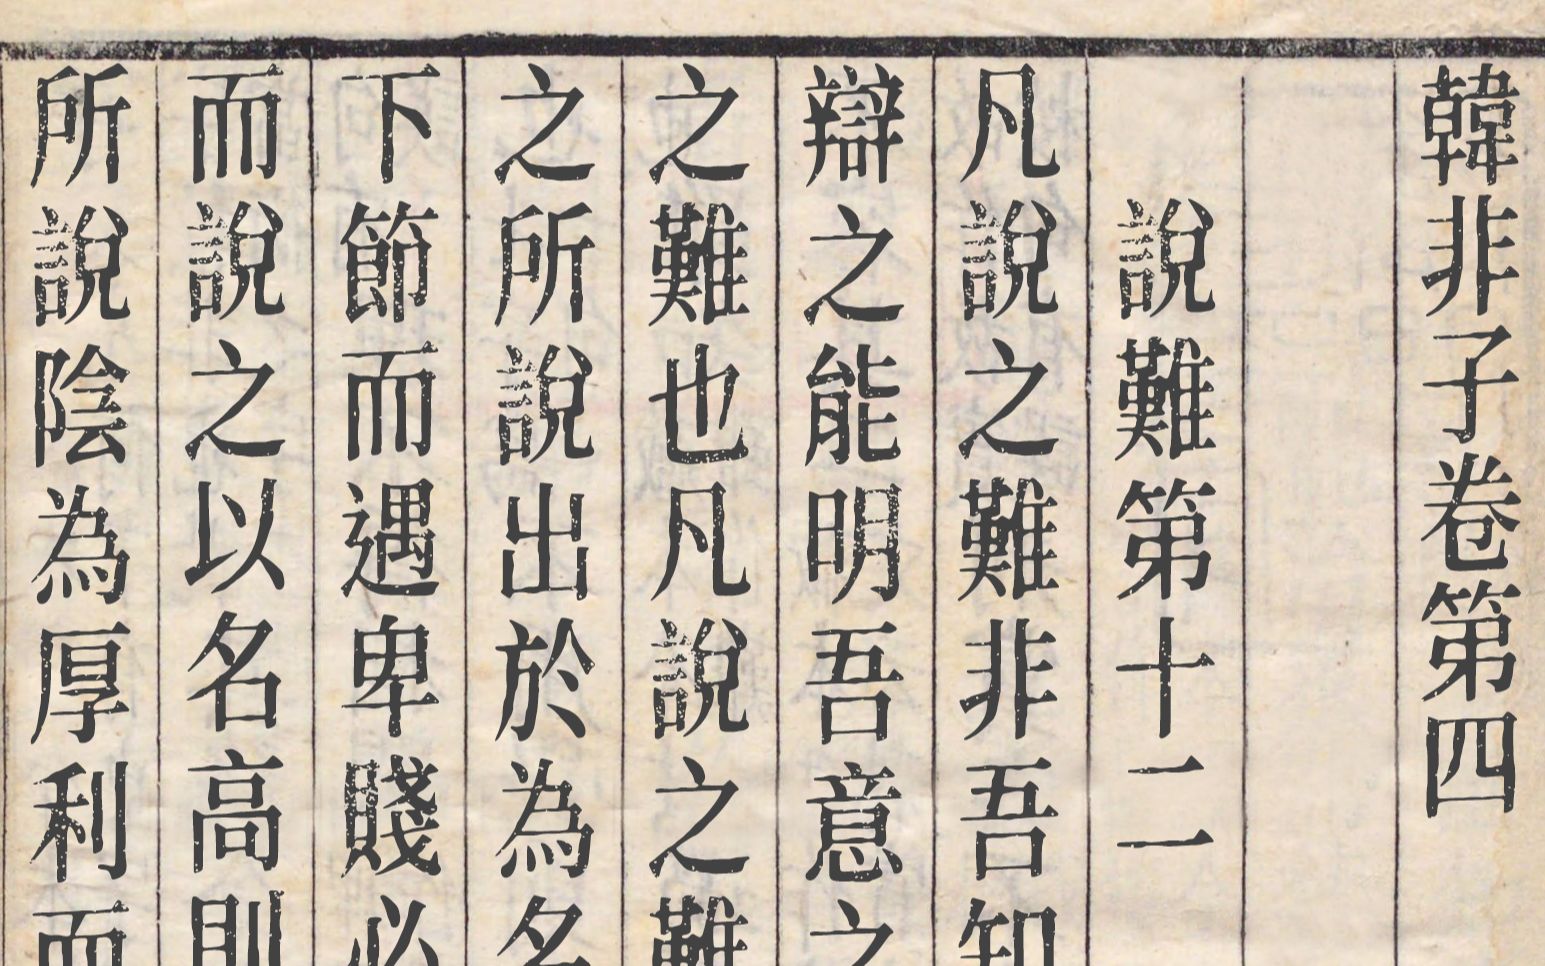 韓非子卷第四
說難第十二
凡說之難非吾知
辯之能明吾意之
之難也凡說之難
之所說出於為名
下節而遇卑賤必
而說之以名高則
所說陰為厚利而